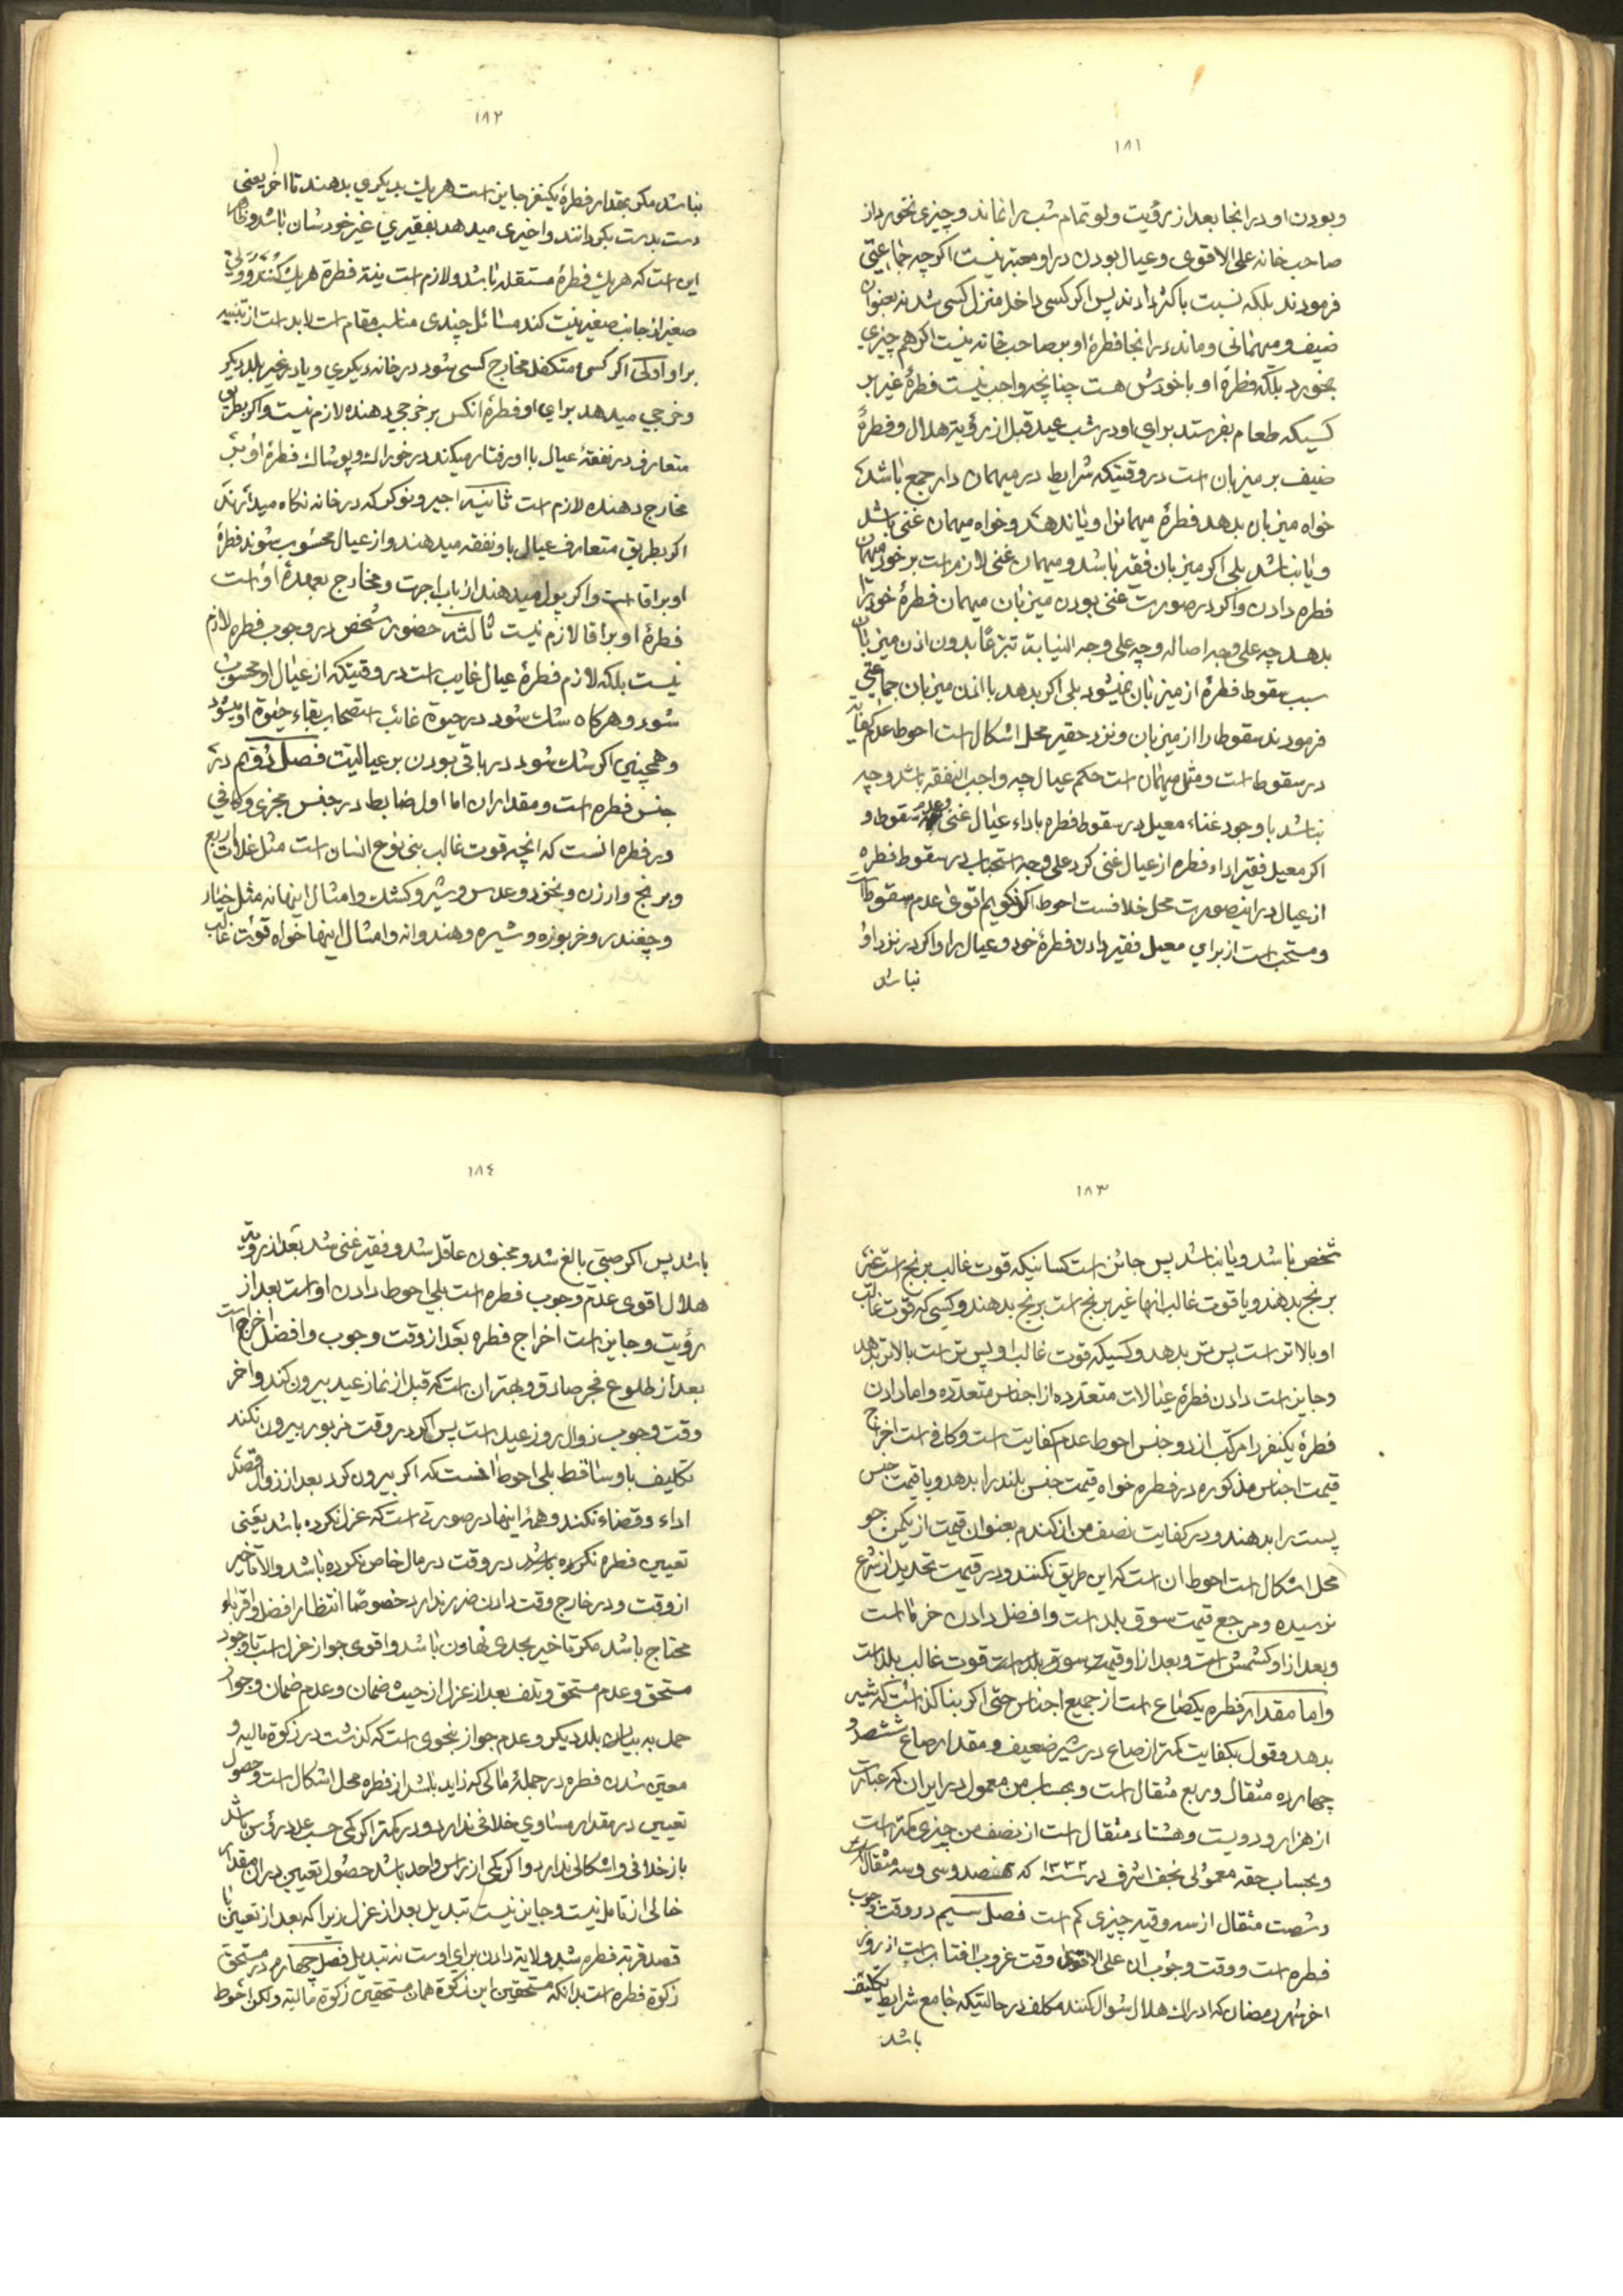 ۱۸۱
و بودن او در انجا بعد از رؤیت ولو تمام شب را نماند و چیزی نخورد از
صاحب خانه علی الاقوی و عیال بودن در او معتبر نیست اکرچه جماعتی
فرمودند بلکه نسبت باکثر دادند پس اکر کسی داخل منزل کسی شد نه بعنوان
ضیف و میهمانی و ماند در انجا فطرهٔ او بر صاحب خانه نیست اکر هم چیزی
بخورد بلکه فطرهٔ او با خودش هست چنانچه واجب نیست فطرهٔ غیر بر
کسیکه طعام بفرستد برای او در شب عید قبل از رؤیة هلال و فطرهٔ
ضیف بر میزبان است در وقتیکه شرایط در میهمان دار جمع باشد
خواه میزبان بدهد فطرهٔ میهمانرا و یا ندهد و خواه میهمان غنی باشد
و یا نباشد بلی اکر میزبان فقیر باشد و میهمان غنی لازم است بر خود میهمان
فطره دادن و اکر در صورت غنی بودن میزبان میهمان فطرهٔ خود را
بدهد چه علی وجه اصاله و چه علی وجه النیابة تبرعًا بدون اذن میزبان
سبب سقوط فطره از میزبان نمیشود بلی اکر بدهد با اذن میزبان جماعتی
فرمودند سقوط را از میزبان و نزد حقیر محل اشکال است احوط عدم کفایة
در سقوط است و مثل میهمان است حکم عیال چه واجب النفقه باشد و چه
نباشد با وجود غناء معیل در سقوط فطره باداء عیال غنی و عدم سقوط و
اکر معیل فقیر اداء فطره از عیال غنی کرد علی وجه استحباب در سقوط فطره
از عیال در اینصورت محل خلافست احوط اکر نکویم اقوی عدم سقوط است
و مستحب است از برای معیل فقیر دادن فطرهٔ خود و عیال را و اکر در نزد او
نباشد
۱۸۲
نباشد مکر بمقدار فطرهٔ یکنفر جایز است هر یك بدیکری بدهند تا اخر یعنی
دست بدست بکردانند و اخیری میدهد بفقیری غیر خودشان باشد و ظاهر
این است که هر یك فطرهٔ مستقله باشد و لازم است نیة فطرة هر یك کنند و ولی
صغیر از جانب صغیر نیت کند مسائل چندی مناسب مقام است لابد است از تنبیه
بر او اولی اکر کسی متکفل مخارج کسی شود در خانه دیکری و یا در غیر بلد دیکر
و خرجی میدهد برای او فطرهٔ انکس بر خرجی دهنده لازم نیست و اکر بطریق
متعارف در نفقهٔ عیال با او رفتار میکند در خوراك و پوشاك فطرهٔ او بر
مخارج دهنده لازم است ثانیه اجیر و نوکر که در خانه نکاه میدارند
اکر بطریق متعارف عیال باو نفقه میدهند و از عیال محسوب شوند فطرهٔ
او بر اقا است و اکر پول میدهند از باب اجرت و مخارج بعهدهٔ او است
فطرهٔ او بر اقا لازم نیست ثالثه حضور شخص در وجوب فطره لازم
نیست بلکه لازم فطرهٔ عیال غایب است در وقتیکه از عیال او محسوب
شود و هرکاه شك شود در حیوة غائب استصحاب بقاء حیوة او میشود
و همچنین اکر شك شود در باقی بودن بر عیالیت فصل دوّم در
جنس فطره است و مقدار ان اما اول ضابط در جنس مجزی و کافی
در فطره انست که انچه قوت غالب بنی نوع انسان است مثل غلات اربع
و برنج و ارزن و نخود و عدس و شیر و کشك و امثال اینها نه مثل خیار
و چغندر و خربوزه و شیره و هندوانه و امثال اینها خواه قوت غالب
۱۸۳
شخص باشد و یا نباشد پس جائز است کسانیکه قوت غالب برنج است غیر
برنج بدهند و یا قوت غالب انها غیر برنج است برنج بدهند و کسی که قوت غالب
او بالاتر است پس تر بدهد و کسیکه قوت غالب او پس تر است بالاتر بدهد
و جایز است دادن فطرهٔ عیالات متعدده از اجناس متعدده و اما دادن
فطرهٔ یکنفر را مرکب از دو جنس احوط عدم کفایت است و کافی است اخراج
قیمت اجناس مذکوره در فطره خواه قیمت جنس بلند را بدهد و یا قیمت جنس
پست را بدهند و در کفایت نصف من از کندم بعنوان قیمت از یکمن جو
محل اشکال است احوط ان است که این طریق نکنند و در قیمت تحدید از شرع
نرسیده و مرجع قیمت سوق بلد است و افضل دادن خرما است
و بعد از او کشمش است و بعد از او قیمت سوق بلد است قوت غالب بلد است
و اما مقدار فطره یکصاع است از جمیع اجناس حتی اکر بنا کذاشت که شیر
بدهد و قول بکفایت کمتر از صاع در شیر ضعیف و مقدار صاع ششصد و
چهارده مثقال و ربع مثقال است و بحساب من معمول در ایران که عبارت
از هزار و دویست و هشتاد مثقال است از نصف من چیزی کمتر است
و بحساب حقه معمولی نجف اشرف در سنه ۱۳۳۲ که نهصد و سی و سه مثقال
و شصت مثقال از سه وقیه چیزی کم است فصل سیم در وقت وجوب
فطره است و وقت وجوب ان علی الاقوی وقت غروب افتاب است از روز
اخر شهر رمضان که ادراك هلال شوال کنند مکلف در حالتیکه جامع شرایط تکلیف
باشد
۱۸٤
باشد پس اکر صبی بالغ شد و مجنون عاقل شد و فقیر غنی شد بعد از رؤیة
هلال اقوی عدم وجوب فطره است بلی احوط دادن او است بعد از
رؤیت و جایز است اخراج فطره بعد از وقت وجوب و افضل اخراج است
بعد از طلوع فجر صادق و بهتر ان است که قبل از نماز عید بیرون کند و اخر
وقت وجوب زوال روز عید است پس اکر در وقت مزبور بیرون نکند
تکلیف باو ساقط بلی احوط انست که اکر بیرون کرد بعد از زوال قصد
اداء و قضاء نکند و همهٔ اینها در صورتی است که عزل نکرده باشد یعنی
تعیین فطره نکرده باشد در وقت در مال خاص نکرده باشد و الا تأخیر
از وقت و در خارج وقت دادن ضرر ندارد خصوصًا انتظار افضل و اقرباء
محتاج باشد مکر تاخیر بحدی تهاون باشد و اقوی جواز عزل است با وجود
مستحق و عدم مستحق و تلف بعد از عزل از حیث ضمان و عدم ضمان و جواز
حمل به بلد دیکر و عدم جواز بنحوی است که کذشت در زکوة مالیه و
معین شدن فطره در جملهٔ مالی که زاید باشد از فطره محل اشکال است و حصول
تعیین در مقدار مساوی خلافی ندارد و در کمتر اکر کمی حسب عدد رؤس باشد
باز خلافی و اشکالی ندارد و اکر کمی از راس واحد باشد حصول تعیین در ان مقدار
خالی از تامل نیست و جایز نیست تبدیل بعد از عزل زیرا که بعد از تعیین با
قصد قربة فطره شد و لایة دادن برای اوست نه تبدیل فصل چهارم در مستحق
زکوة فطره است بدانکه مستحقین این زکوة همان مستحقین زکوة مالیة و لکن احوط